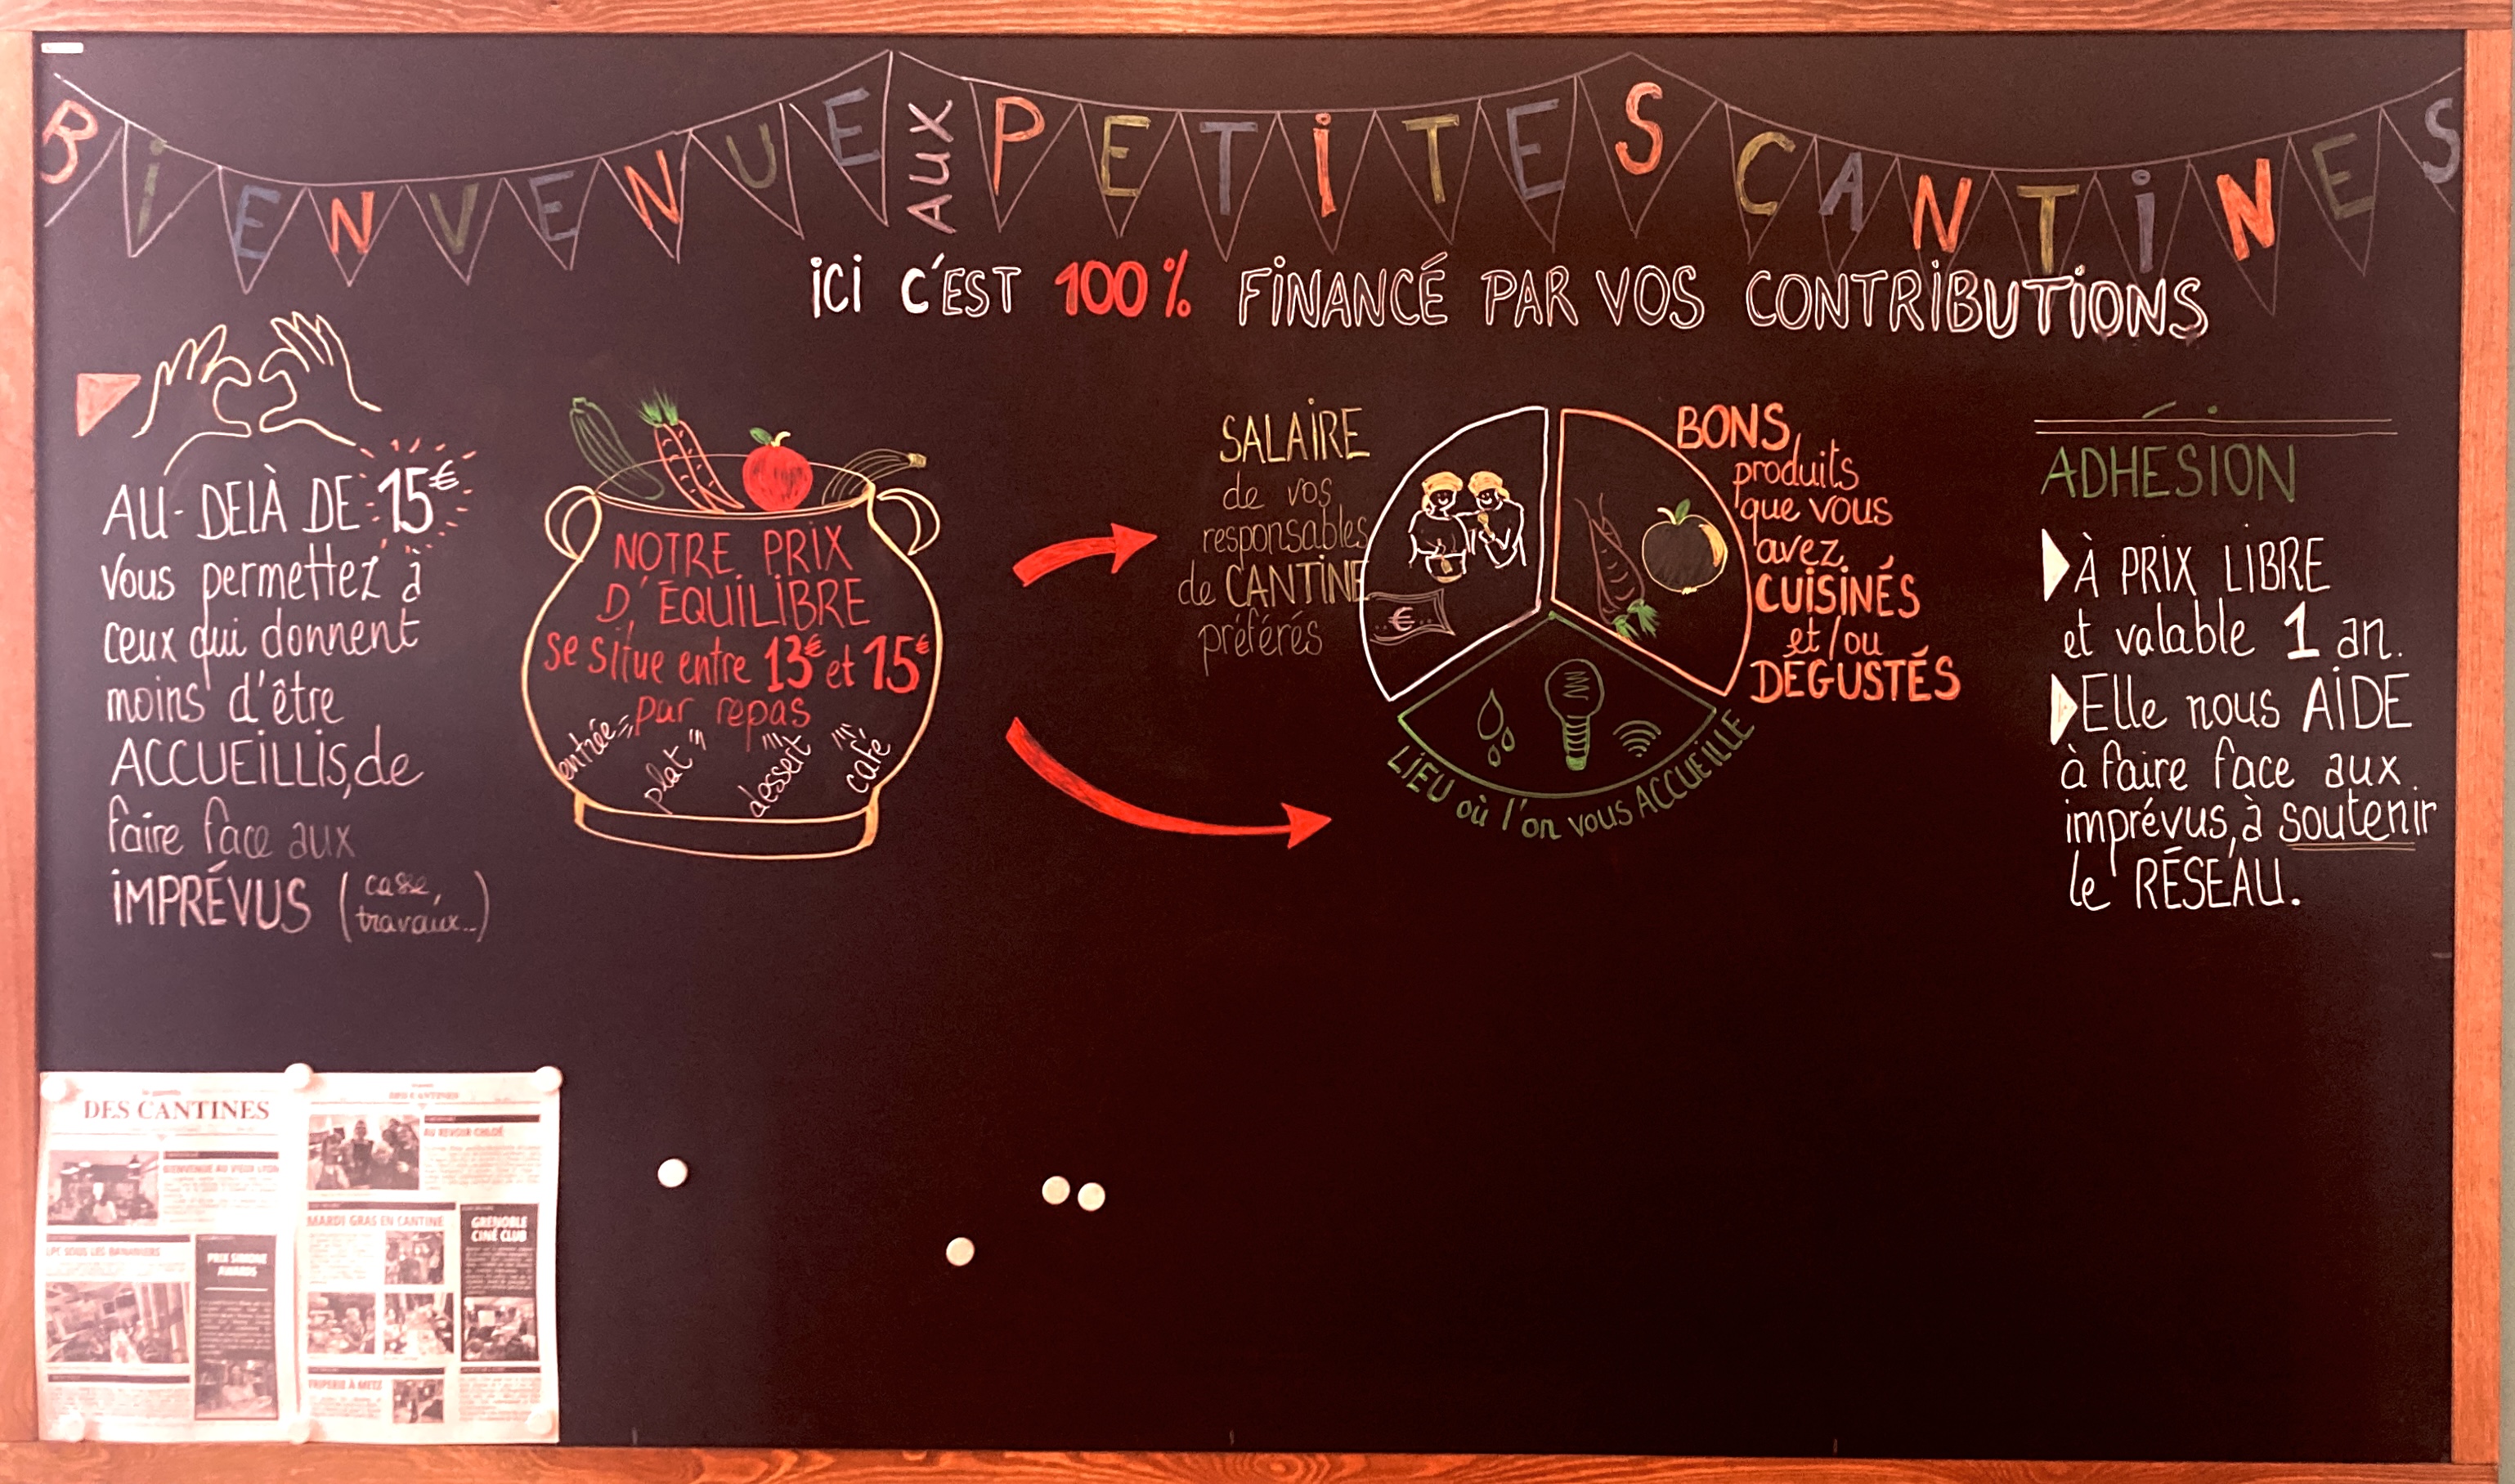 BiENVENUE AUX PETiTES CANTiNES
iCi C'EST 100% FiNANCÉ PAR VOS CONTRiBUTiONS
AU-DELÀ DE 15€
Vous permettez à
ceux qui donnent
moins d'être
ACCUEiLLiS, de
faire face aux
iMPRÉVUS (casse,
travaux...)
NOTRE PRiX
D'ÉQUiLiBRE
se situe entre 13€ et 15€
par repas
entrée
plat
dessert
café
SALAiRE
de vos
responsables
de CANTiNE
préférés
€
BONS
produits
que vous
avez
CUiSiNÉS
et/ou
DÉGUSTÉS
LiEU où l'on vous ACCUEiLLE
ADHÉSiON
À PRiX LiBRE
et valable 1 an.
Elle nous AiDE
à faire face aux
imprévus, à soutenir
le RÉSEAU.
DES CANTINES
BIENVENUE AU VIEUX LYON
LPC SOUS LES BANANIERS
PRIX SIMONE
AWARDS
DES CANTINES
AU REVOIR CHLOÉ
MARDI GRAS EN CANTINE
GRENOBLE
CINÉ CLUB
FRIPERIE À METZ